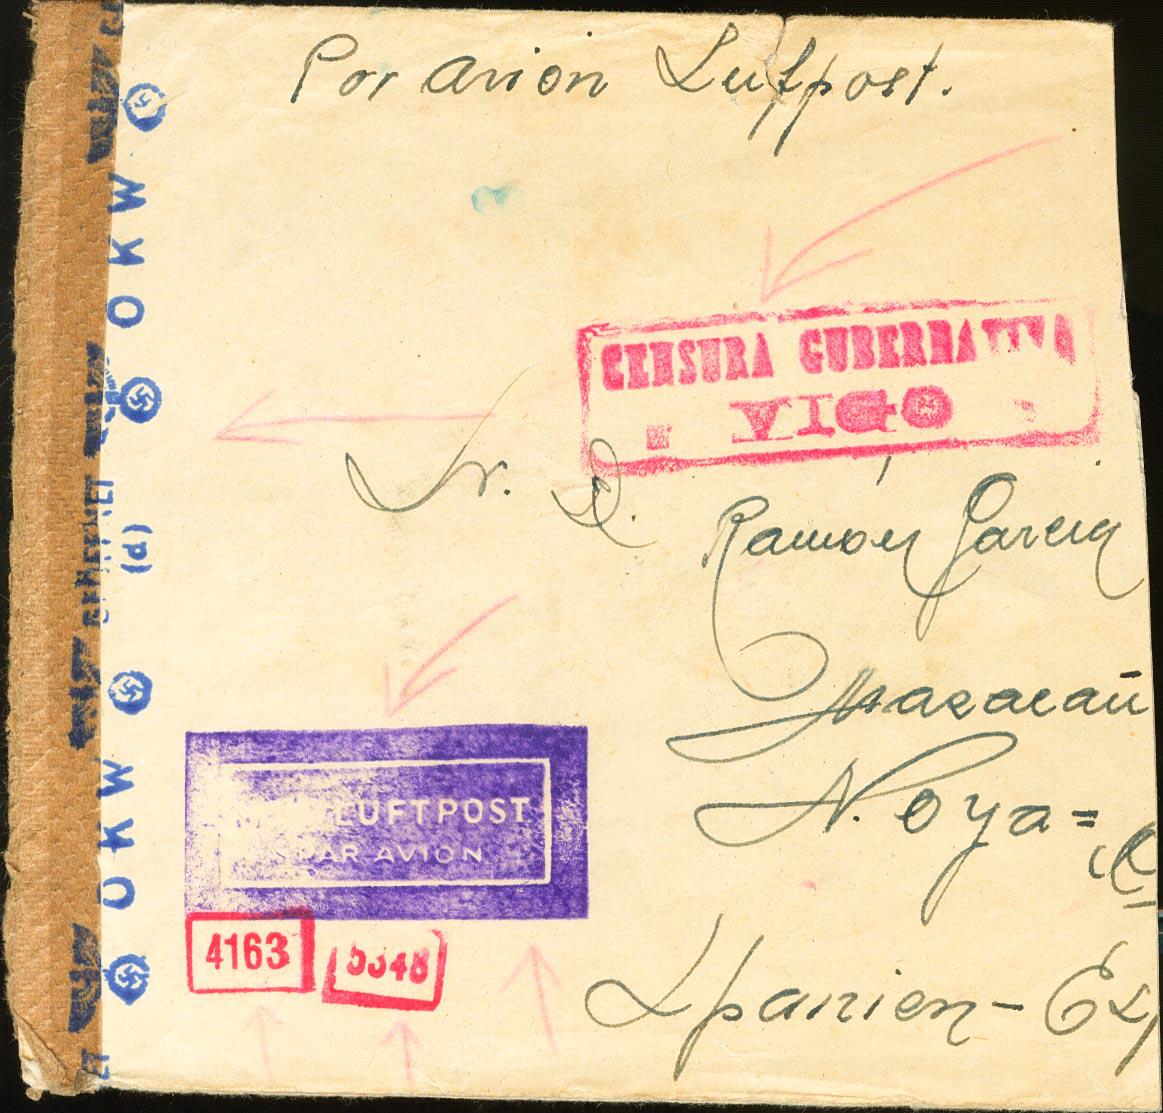 Por avion Lufpost.
CENSURA GUBERNATIVA
VIGO
Sr. D.
Ramón Garcia
Noya =
Spanien - Esp
LUFTPOST
PAR AVION
4163
5348
O K W
GEÖFFNET
(d)
O K W
ET